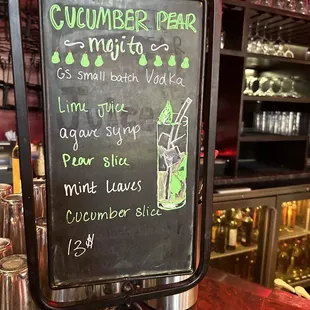 CUCUMBER PEAR
mojito
GS small batch Vodka
Lime juice
agave syrup
Pear slice
mint leaves
Cucumber slice
13$